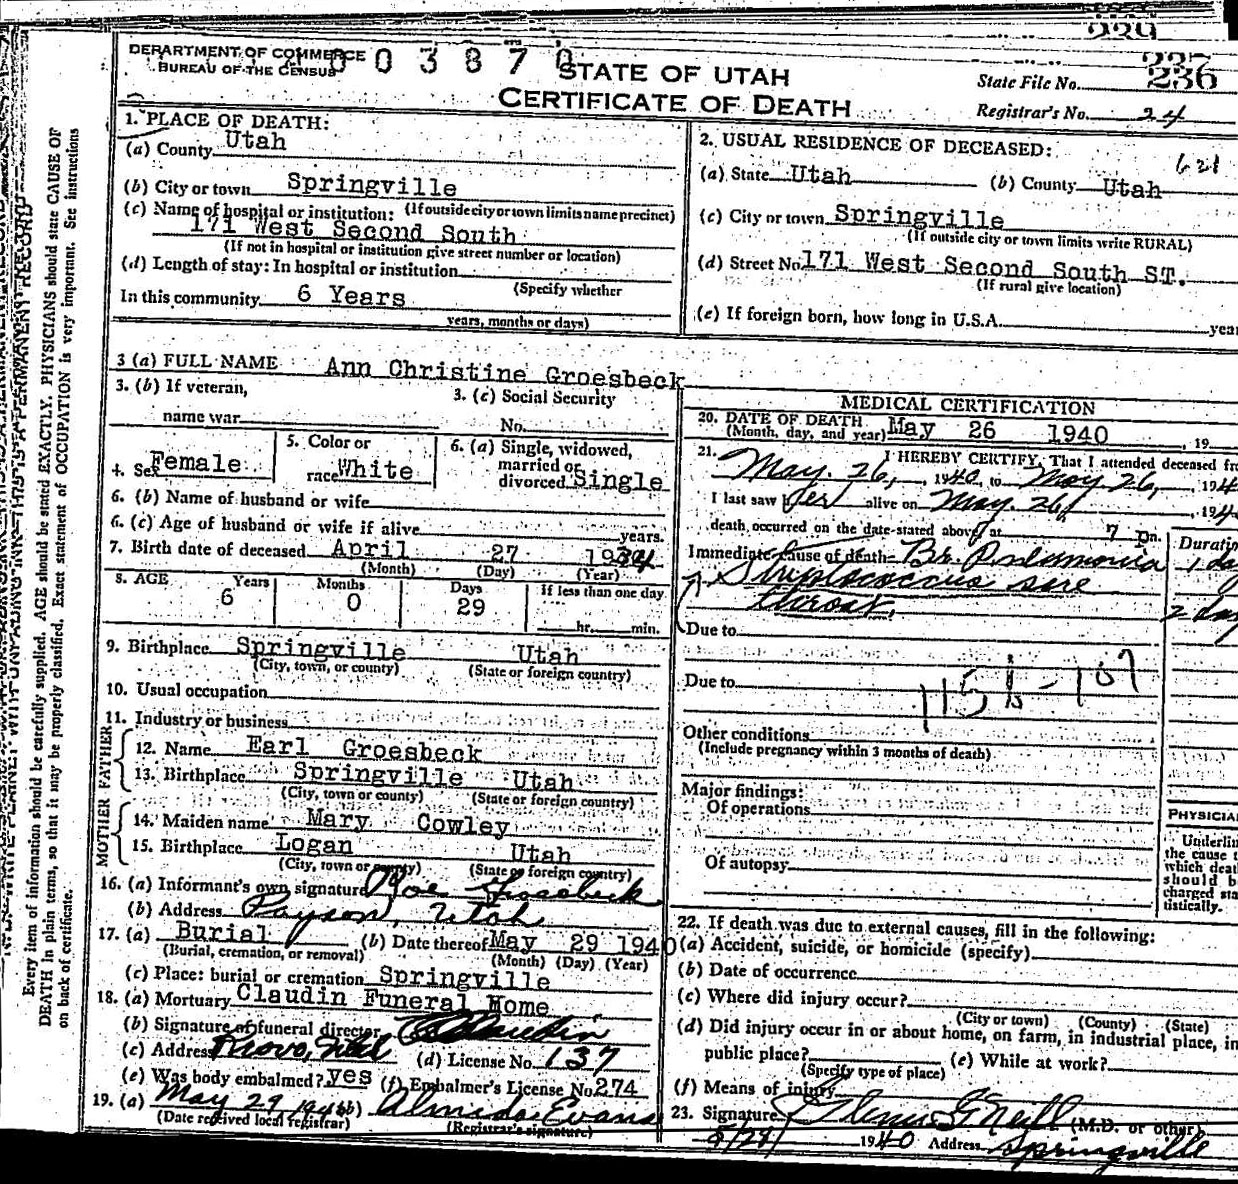 229
DEPARTMENT OF COMMERCE
BUREAU OF THE CENSUS
003870
STATE OF UTAH
CERTIFICATE OF DEATH
State File No. 237 236
Registrar's No. 24
1. PLACE OF DEATH:
(a) County Utah
(b) City or town Springville
(If outside city or town limits name precinct)
(c) Name of hospital or institution:
171 West Second South
(If not in hospital or institution give street number or location)
(d) Length of stay: In hospital or institution
(Specify whether
In this community 6 Years
years, months or days)
2. USUAL RESIDENCE OF DECEASED:
(a) State Utah (b) County Utah
(c) City or town Springville
(If outside city or town limits write RURAL)
(d) Street No. 171 West Second South ST.
(If rural give location)
(e) If foreign born, how long in U.S.A.
3 (a) FULL NAME Ann Christine Groesbeck
3. (b) If veteran,
name war
3. (c) Social Security
No.
4. Sex Female
5. Color or
race White
6. (a) Single, widowed,
married or
divorced Single
6. (b) Name of husband or wife
6. (c) Age of husband or wife if alive years.
7. Birth date of deceased April 27 1934
(Month) (Day) (Year)
8. AGE Years Months Days If less than one day
6 0 29
hr. min.
9. Birthplace Springville Utah
(City, town, or county) (State or foreign country)
10. Usual occupation
11. Industry or business
FATHER
12. Name Earl Groesbeck
13. Birthplace Springville Utah
(City, town or county) (State or foreign country)
MOTHER
14. Maiden name Mary Cowley
15. Birthplace Logan Utah
(City, town or county) (State or foreign country)
16. (a) Informant's own signature Groesbeck
(b) Address Payson, Utah
17. (a) Burial (b) Date thereof May 29 1940
(Burial, cremation, or removal) (Month) (Day) (Year)
(c) Place: burial or cremation Springville
18. (a) Mortuary Claudin Funeral Home
(b) Signature of funeral director
(c) Address Provo, Utah (d) License No. 137
(e) Was body embalmed? yes (f) Embalmer's License No. 274
19. (a) May 29, 1940 (b) Almeda Evans
(Date received local registrar) (Registrar's signature)
MEDICAL CERTIFICATION
20. DATE OF DEATH
(Month, day, and year) May 26 1940, 19
21. I HEREBY CERTIFY, That I attended deceased
May. 26, 1940, to May 26, 194
I last saw her alive on May. 26, 194
death occurred on the date stated above at 7 p.m.
Immediate cause of death Br. Pneumonia
Streptococcus sore
throat.
Due to
Due to
115b-107
Other conditions
(Include pregnancy within 3 months of death)
Major findings:
Of operations
Of autopsy
Underline
the cause
which
should
charged
tistically.
22. If death was due to external causes, fill in the following:
(a) Accident, suicide, or homicide (specify)
(b) Date of occurrence
(c) Where did injury occur?
(City or town) (County) (State)
(d) Did injury occur in or about home, on farm, in industrial place, in
public place? (e) While at work?
(Specify type of place)
(f) Means of injury
23. Signature (M.D. or other)
5/28/ 1940 Address Springville
Every item of information should be carefully supplied. AGE should be stated EXACTLY. PHYSICIANS should state CAUSE OF
DEATH in plain terms, so that it may be properly classified. Exact statement of OCCUPATION is very important. See instructions
on back of certificate.